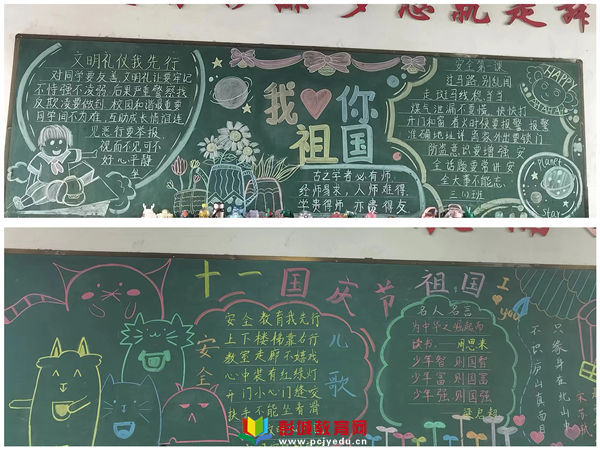 文明礼仪我先行
对同学要友善 文明礼让要牢记
不恃强不凌弱 后果严重警察找
反欺凌要做到 校园和谐最重要
同学间不为难 互助成长情谊连
见恶行要举报
视而不见可不
好心平静
我❤你
祖国
古之学者必有师
经师易求 人师难得
学贵得师 亦贵得友
安全第一课
过马路 别乱闯
走斑马线
煤气泄漏不要慌 快快打
开门和窗
外出要锁门
防盗意识要增强
全话题要常讲 安
全大事不能忘
HAPPY
planet
stay
十一国庆节 祖国
I
❤you
安全
安全教育我先行
上下楼梯靠右行
教室走廊不嬉戏
心中装有红绿灯
开门小心门缝夹
扶手不能坐着滑
儿歌
名人名言
为中华之崛起而
读书.——周恩来
少年智 则国智
少年富 则国富
少年强 则国强
梁启超
不识庐山真面目
只缘身在此山中
宋 苏轼
彭城教育网
www.pcjyedu.cn